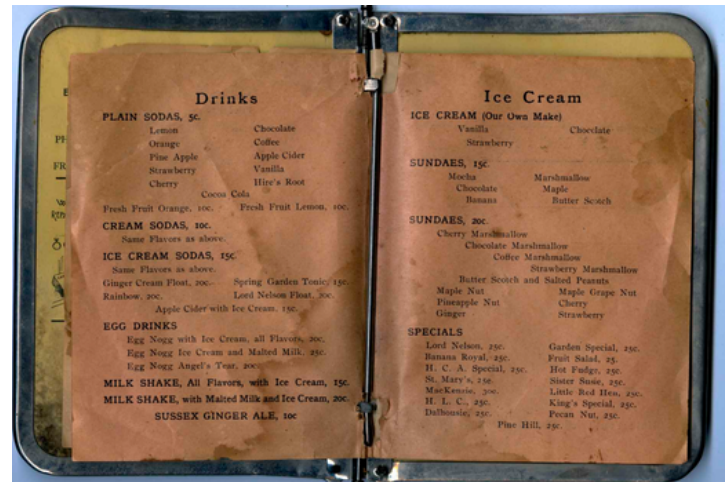 Drinks
PLAIN SODAS, 5c.
Lemon Chocolate
Orange Coffee
Pine Apple Apple Cider
Strawberry Vanilla
Cherry Hire's Root
Cocoa Cola
Fresh Fruit Orange, 10c. Fresh Fruit Lemon, 10c.
CREAM SODAS, 10c.
Same Flavors as above.
ICE CREAM SODAS, 15c.
Same Flavors as above.
Ginger Cream Float, 20c. Spring Garden Tonic, 15c.
Rainbow, 20c. Lord Nelson Float, 20c.
Apple Cider with Ice Cream, 15c.
EGG DRINKS
Egg Nogg with Ice Cream, all Flavors, 20c.
Egg Nogg Ice Cream and Malted Milk, 25c.
Egg Nogg Angel's Tear, 20c.
MILK SHAKE, All Flavors, with Ice Cream, 15c.
MILK SHAKE, with Malted Milk and Ice Cream, 20c.
SUSSEX GINGER ALE, 10c
Ice Cream
ICE CREAM (Our Own Make)
Vanilla Chocolate
Strawberry
SUNDAES, 15c.
Mocha Marshmallow
Chocolate Maple
Banana Butter Scotch
SUNDAES, 20c.
Cherry Marshmallow
Chocolate Marshmallow
Coffee Marshmallow
Strawberry Marshmallow
Butter Scotch and Salted Peanuts
Maple Nut Maple Grape Nut
Pineapple Nut Cherry
Ginger Strawberry
SPECIALS
Lord Nelson, 25c. Garden Special, 25c.
Banana Royal, 25c. Fruit Salad, 25.
H. C. A. Special, 25c. Hot Fudge, 25c.
St. Mary's, 25c. Sister Susie, 25c.
MacKenzie, 30c. Little Red Hen, 25c.
H. L. C., 25c. King's Special, 25c.
Dalhousie, 25c. Pecan Nut, 25c.
Pine Hill, 25c.